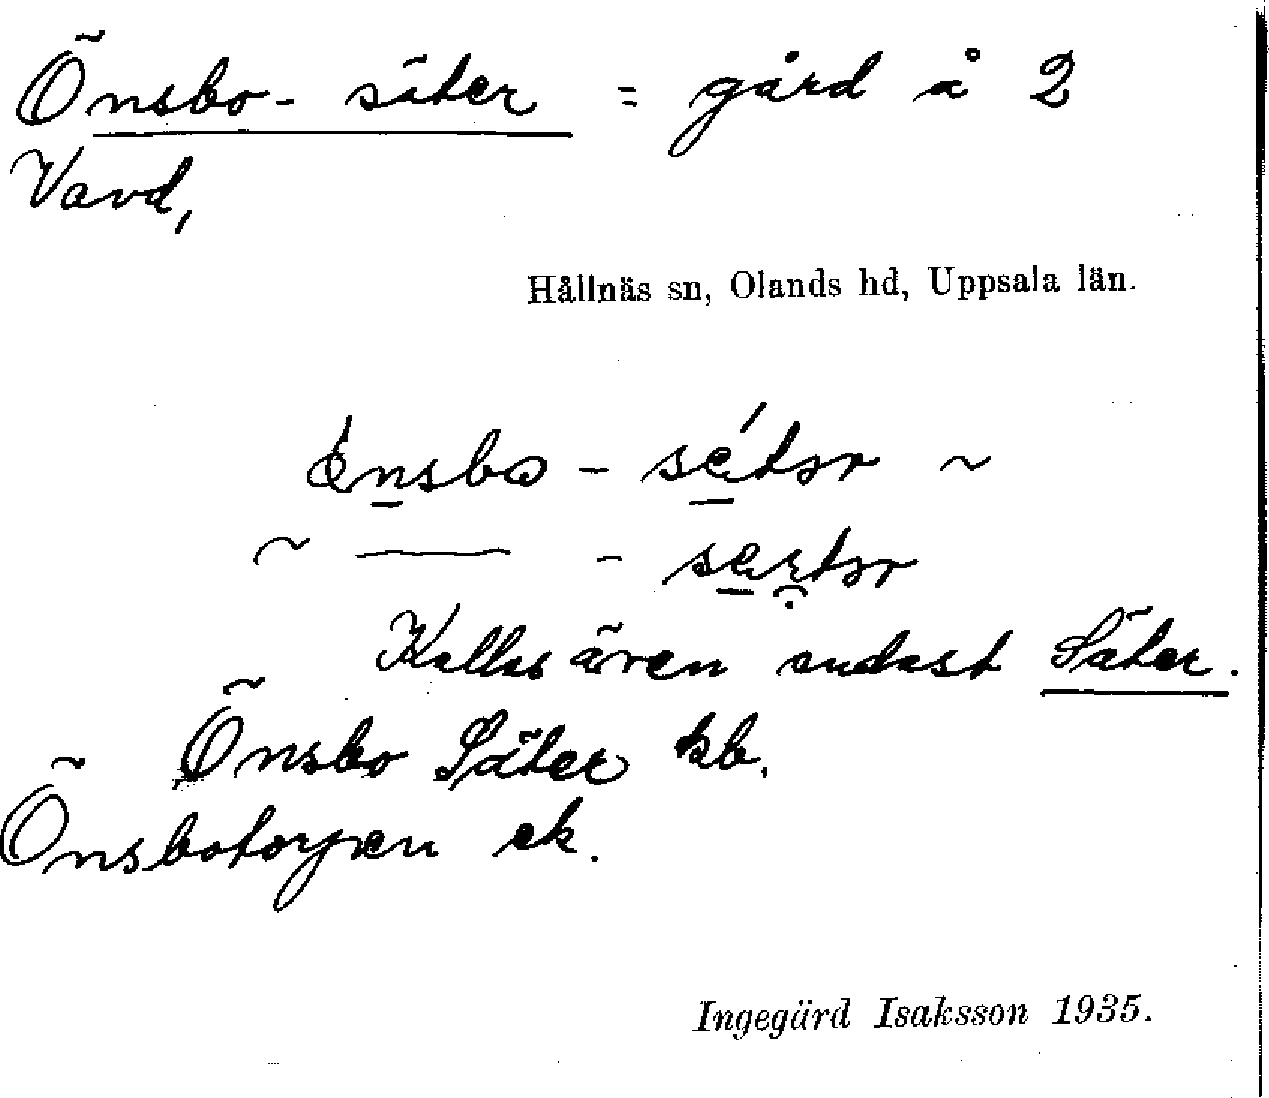 Önsbo-säter = gård å 2
Vavd,
Hållnäs sn, Olands hd, Uppsala län.
~
~ —— -
Kallas även endast Säter.
Önsbo Säter kb.
Önsbotorpen ek.
Ingegärd Isaksson 1935.